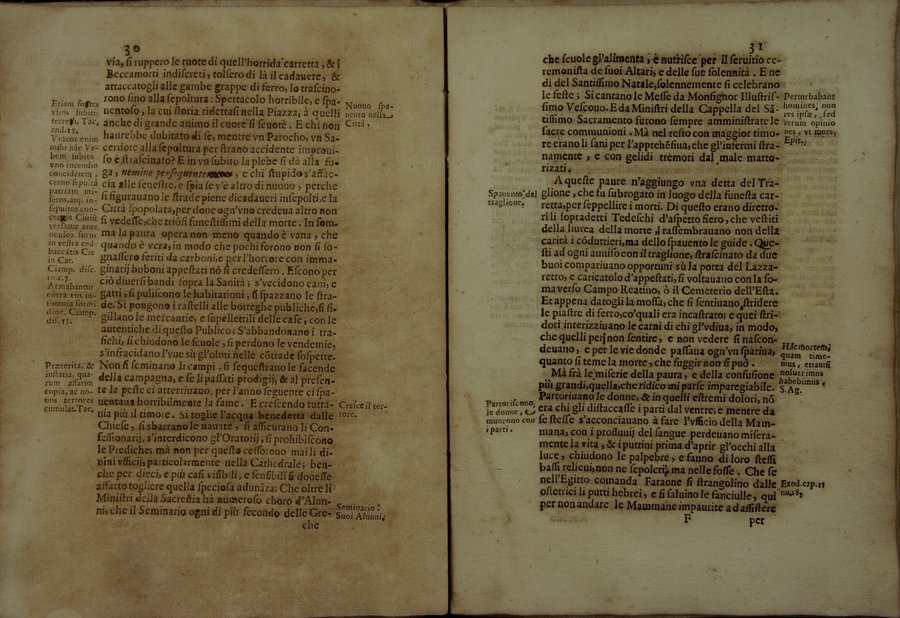 30
via, si ruppero le ruote di quell'horrida carretta, & i
Beccamorti indiscreti, tolsero di là il cadauere, &
attaccatogli alle gambe grappe di ferro, lo trascino-
rono sino alla sepoltura: Spettacolo horribile, e spa-
uentoso, la cui storia ridettasi nella Piazza, à quelli
anche di grande animo il cuore si scuote. E chi non
haurebbe dubitato di se, mentre vn Parocho, vn Sa-
cerdote alla sepoltura per strano accidente improui-
so è strascinato? E in vn subito la plebe si dà alla fu-
ga, nemine persequente, e chi stupido s'affac-
cia alle fenestre, e spia se v'è altro di nuouo, perche
si figurauano le strade piene di cadaueri insepolti, e la
Città spopolata, per doue ogn'vno credeua altro non
si vedesse, che triõfi funestissimi della morte. In som-
ma la paura opera non meno quando è vana, che
quando è vera, in modo che pochi forono non si so-
gnassero feriti da carboni, e per l'horrore con imma-
ginarij buboni appestati nõ si credessero. Escono per
ciò diuersi bandi sopra la Sanità; s'vecidono cani, e
gatti; si puliscono le habitationi, si spazzano le stra-
de. Si pongono i rastelli alle botteghe publiche, si si-
gillano le mercantie, e supellettili delle case, con le
autentiche di questo Publico; S'abbandonano i tra-
fichi, si chiudono le scuole, si perdono le vendemie,
s'infracidano l'vue sù gl'olmi nelle cõtrade sospette.
Non si seminano li campi, si sequestrano le facende
della campagna, e se li passati prodigij, & al presen-
te la peste ci atterriuano, per l'anno seguente ci spa-
uentaua horribilmente la fame. E crescendo tutta-
uia più il timore. Si toglie l'acqua benedetta dalle
Chiese, si sbarrano le nauate, si assicurano li Con-
fessionarij, s'interdicono gl'Oratorij, si prohibiscono
le Prediche; mà non per questo cessorono mai li di-
uini vfficij, particolarmente nella Cathedrale; ben-
che per dieci, e più casi visibili, e sensibili si douesse
affatto togliere quella speciosa adunãza; Che oltre li
Ministri della Sacrestia hà numeroso choro d'Alun-
ni, che il Seminario ogni dì più secondo delle Gre-
che
Etiam fortes
viros subitis
terreri. Tac.
and. 15.
Videor enim
mihi hãc Vr-
bem subito
vno incendio
concidetem,
cerno sepulta
patriam mi-
seros, atq; in-
sepultos con-
Ciuiũ
versatur ante
oculos furor
in vestra cede
baccatis Cic
in Cat.
Ciamp. disc.
10. c. 7.
Armabantur
cõtra eos in-
somnia formi
dine. Ciamp.
disc. 15.
Præterita, &
instatia, qua-
rum assatim
copia, ac no-
nos terrores
cumulat. Tac.
Nuouo spa-
uento nella
Città.
Cresce il ter-
rore.
Seminario?
Suoi Alunni.
31
che scuole gl'alimenta, è nutrisce per il seruitio ce-
remonista de suoi Altari, e delle sue solennità. E ne
dì del Santissimo Natale, solennemente si celebrano
le feste; Si cantano le Messe da Monsignor Illustris-
simo Vescouo. E da Ministri della Cappella del Sã-
tissimo Sacramento furono sempre amministrate le
sacre communioni. Mà nel resto con maggior timo-
re erano li sani per l'apprehẽsiua, che gl'infermi stra-
namente, e con gelidi tremori dal male matto-
rizati.
A queste paure n'aggiungo vna detta del Tra-
glione, che fu subrogato in luogo della funesta car-
retta, per seppellire i morti. Di questo erano diretto-
ri li sopradetti Tedeschi d'aspetto fiero, che vestiti
della liurea della morte, rassembrauano non della
carità i cõduttieri, ma dello spauento le guide. Que-
sti ad ogni auuiso con il traglione, strascinato da due
buoi compariuano opportuni sù la porta del Lazza-
retto, e caricatolo d'appestati, si voltauano con la so-
ma verso Campo Reatino, ò il Cemeterio dell'Esta.
Et appena datogli la mossa, che si sentiuano stridere
le piastre di ferro, co'quali era incastrato; e quei stri-
dori interizziuano le carni di chi gl'vdiua, in modo,
che quelli per non sentire, e non vedere si nascon-
deuano, e per le vie donde passaua ogn'vn spariua,
quanto si teme la morte, che fuggir non si può.
Mà frà le miserie della paura, e della confusione
più grandi, quella, che ridico mi parse impareggiabile.
Partoriuano le donne, & in quelli estremi dolori, nõ
era chi gli distaccasse i parti dal ventre; e mentre da
se stesse s'acconciauano à fare l'vfficio della Mam-
mana, con i prosluuij del sangue perdeuano misera-
mente la vita, & i puttini prima d'aprir gl'occhi alla
luce, chiudono le palpebre, e fanno di loro stessi
bassi relieui, non ne sepolcri, ma nelle fosse. Che se
nell'Egitto comanda Faraone si strangolino dalle
ostetrici li putti hebrei, e si saluino le fanciulle, quì
per non andare le Mammane impaurite ad assistere
F
per
Spauento del
traglione.
Partoriscono
le donne, e
muorono con
i parti.
Perturbabant
homines, non
res ipsæ, sed
rerum opinio
nes, vt mors,
Epit.
Hãc mortem,
quam time-
mus, etiamsi
noluerimus
habebimus,
S. Ag.
Exod. cap. 11
nu. 18.